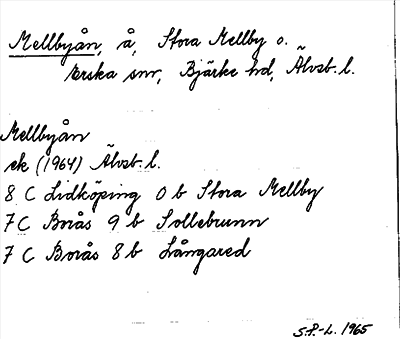 Mellbyån, å, Stora Mellby o.
Erska snr, Bjärke hd, Älvsb. l.
Mellbyån
ek (1964) Älvsb. l.
8 C Lidköping 0 b Stora Mellby
7 C Borås 9 b Sollebrunn
7 C Borås 8 b Långared
S.P.-L. 1965